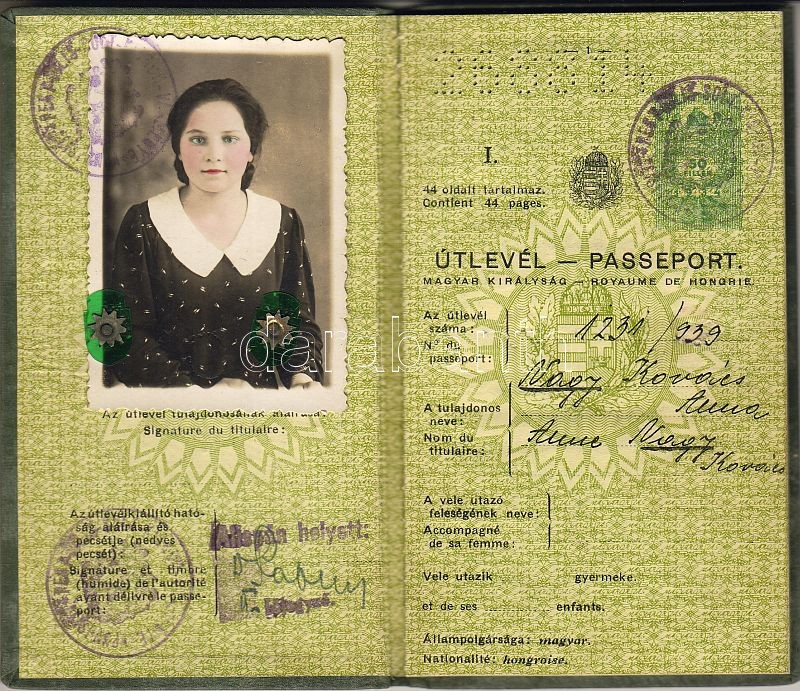 Az útlevél tulajdonosának aláírása:
Signature du titulaire:
Az útlevélkiállító ható-
ság aláírása és
pecsétje (nedves
pecsét):
Signature et timbre
(humide) de l'autorité
ayant délivré le passe-
port:
helyett:
I.
44 oldalt tartalmaz.
Contient 44 pages.
50
ÚTLEVÉL — PASSEPORT.
MAGYAR KIRÁLYSÁG — ROYAUME DE HONGRIE
Az útlevél
száma:
No. du
passeport:
1231/939
A tulajdonos
neve:
Nom du
titulaire:
Nagy Kovács
Anna
Anne Nagy
Kovács
A vele utazó
feleségének neve:
Accompagné
de sa femme:
Vele utazik gyermeke.
et de ses enfants.
Állampolgársága: magyar.
Nationalité: hongroise.
darabanth